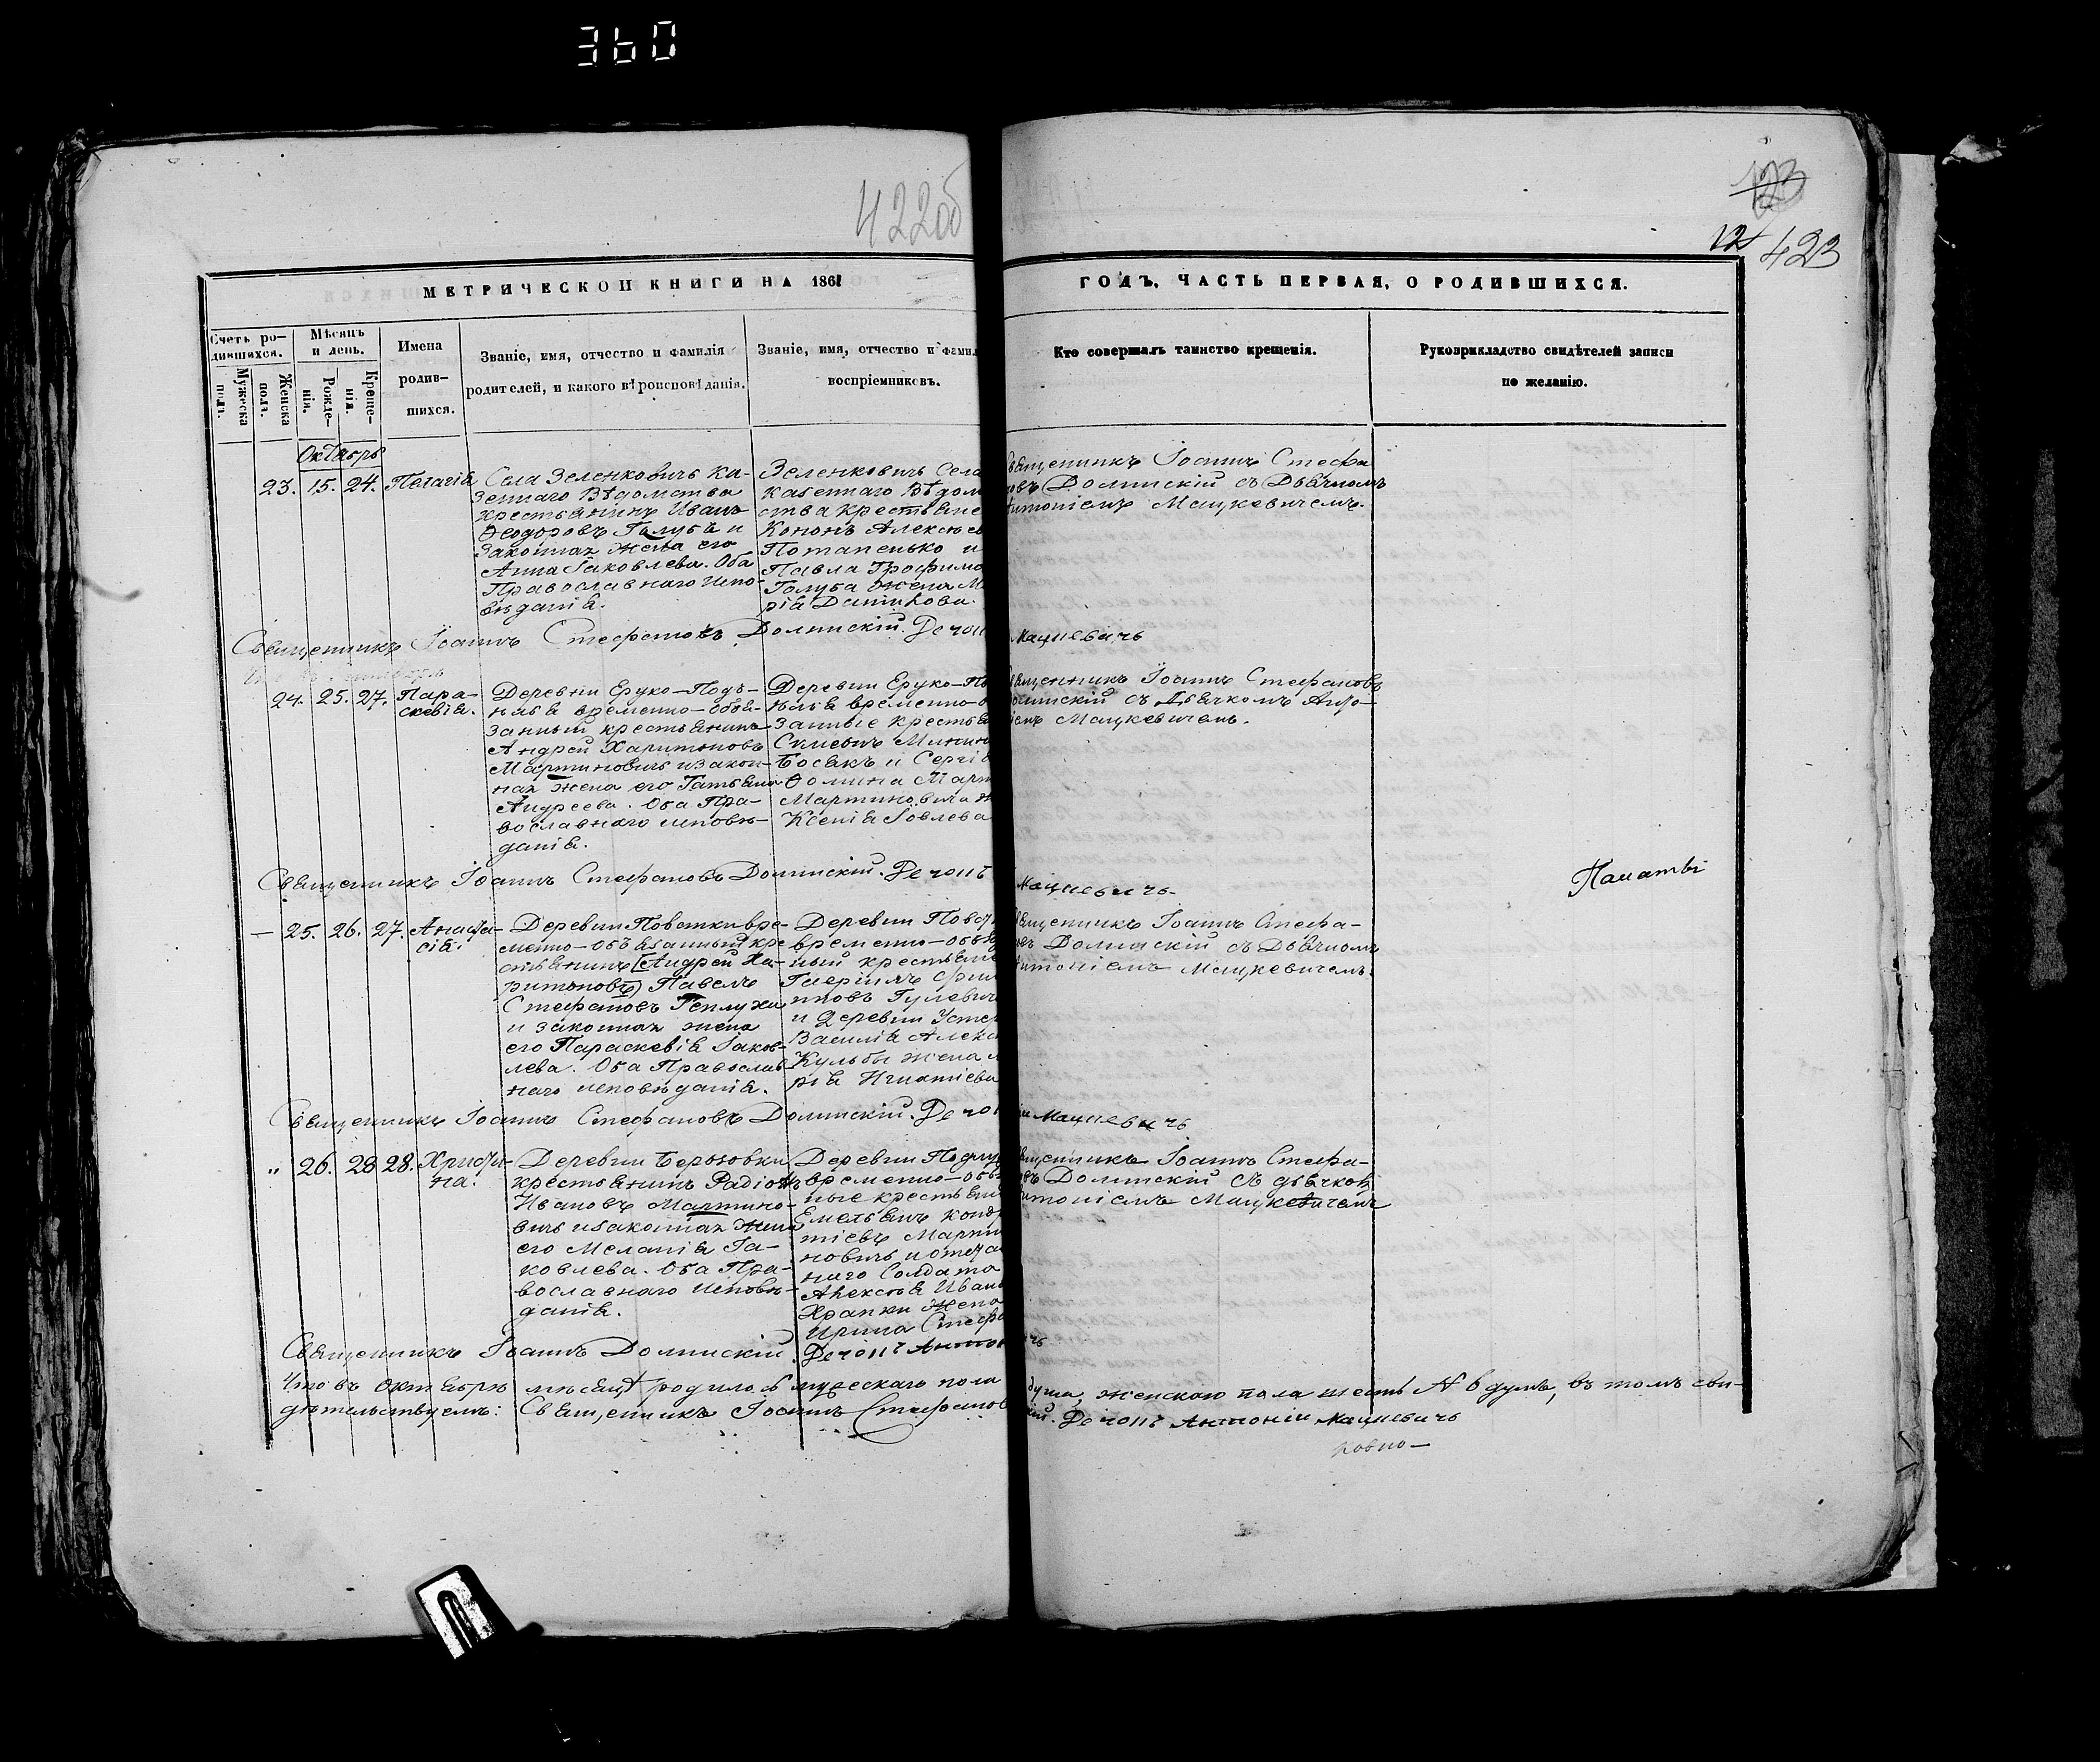 360
422об
123
12
423
МЕТРИЧЕСКОЙ КНИГИ НА 1861
ГОДЪ, ЧАСТЬ ПЕРВАЯ, О РОДИВШИХСЯ.
Счетъ ро-
дившихся.
Мужеска
пола.
Женска
пола.
Мѣсяцъ
и день.
Рожде-
нія.
Креще-
нія.
Имена
родив-
шихся.
Званіе, имя, отчество и фамилія
родителей, и какого вѣроисповѣданія.
Званіе, имя, отчество и фамил
воспріемниковъ.
Кто совершалъ таинство крещенія.
Рукоприкладство свидѣтелей записи
по желанію.
Октябрь
23. 15. 24. Пелагія
Села Зеленковичь ка-
зеннаго вѣдомства
крестьянинъ Иванъ
Феодоровъ Голубъ и
законная жена его
Анна Іаковлева. Оба
Православнаго испо-
вѣданія.
Зеленковичь села
казеннаго вѣдом
ства крестьяне
Кононъ Алексѣев
Потапенько и
Павла Трофимо
Голуба жена М
рія Данилова.
вященникъ Іоаннъ Стефа
новъ Долинскій съ Дьячкомъ
Антоніемъ Мацкевичемъ.
Священникъ Іоаннъ Стефановъ Долинскій. Дечон
Мацкевичь
24. 25. 27. Пара-
скевія.
Деревни Еруко-Подъ-
временно-обя-
занный крестьянинъ
Андрей Харитоновъ
Мартиновичь и закон-
ная жена его Татьяна
Андреева. Оба Пра-
вославнаго исповѣ-
данія.
Деревни Еруко-По
временно-о
занные крестья
Минин
Босакъ и Сергія
Фомина Март
Мартиновича ж
Ксенія Іовлева
вященникъ Іоаннъ Стефановъ
Долинскій съ Дьячкомъ Анто-
ніемъ Мацкевичемъ.
Священникъ Іоаннъ Стефановъ Долинскій. Дечонъ
Мацкевичь
— 25. 26. 27. Анаста-
сія.
Деревни Поватки вре-
менно-обязанный кре
стьянинъ [Андрей Ха-
ритоновъ] Павелъ
Стефановъ Теплуха
и законная жена
его Параскевія Іаков-
лева. Оба Православ-
наго исповѣданія.
Деревни Поват
временно-обяз
ный крестьяне
Гавріилъ Фили
пповъ Гулевичь
и Деревни Усте
Василія Алекс
Кульбы жена М
рія Игнатіева
вященникъ Іоаннъ Стефа-
новъ Долинскій съ Дьячкомъ
Антоніемъ Мацкевичемъ.
Священникъ Іоаннъ Стефановъ Долинскій. Дечон
Мацкевичь
„ 26. 28 28. Христи-
на.
Деревни Березовки
крестьянинъ Радіонъ
Ивановъ Мартино-
вичь и законная жена
его Меланія Іа-
ковлева. Оба Пра-
вославнаго исповѣ-
данія.
Деревни Подлу
временно-обяз
ные крестьян
Емельянъ Конд
тіевъ Марти
новичь и отста
ннаго Солдата
Алексѣя Иван
Храпки жена
Ирина Стефа
вященникъ Іоаннъ Стефа-
новъ Долинскій съ дьячком
Антоніемъ Мацкевичемъ
Священникъ Іоаннъ Долинскій. Дечонъ Антон
чь
Что въ Октябрѣ мѣсяцѣ родилось мужескаго пола
душа, женскаго пола шесть № 6 душъ, въ томъ сви-
дѣтельствуемъ: Священникъ Іоаннъ Стефанов
кій. Дечонъ Антоніи Мацкевичь
ровно—